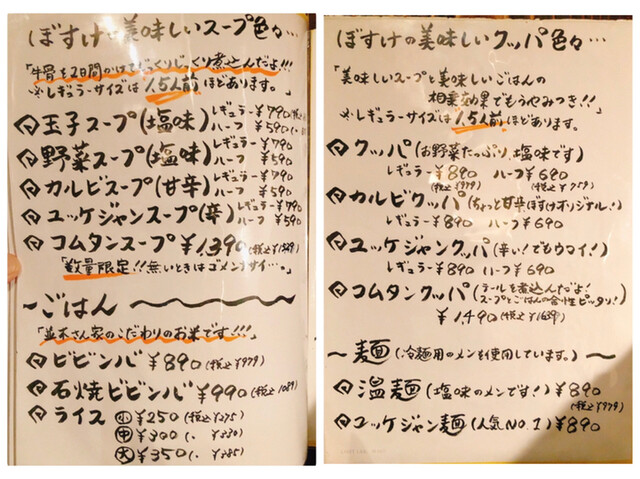 ぼすけの美味しいスープ色々…
「牛骨を2日間かけてじっくりじっくり煮込んだよ!!!
※レギュラーサイズは1.5人前ほどあります。」
玉子スープ(塩味) レギュラー¥790
ハーフ ¥590
野菜スープ(塩味) レギュラー¥790
ハーフ ¥590
カルビスープ(甘辛) レギュラー¥790
ハーフ ¥590
ユッケジャンスープ(辛) レギュラー¥790
ハーフ ¥590
コムタンスープ ¥1,390
「数量限定!!無いときはゴメンナサイ…。」
~ごはん~
「並木さん家のこだわりのお米です!!!」
ビビンバ ¥890(税込¥979)
石焼ビビンバ ¥990(税込1089)
ライス 小 ¥250(税込¥275)
中 ¥300(〃 ¥330)
大 ¥350(〃 ¥385)
ぼすけの美味しいクッパ色々…
「美味しいスープと美味しいごはんの
相乗効果でもうやみつき!!」
※レギュラーサイズは1.5人前ほどあります。
クッパ(お野菜たっぷり、塩味です)
レギュラー¥890 ハーフ¥690
(税込¥979) (税込¥759)
カルビクッパ(ちょっと甘辛ぼすけオリジナル!)
レギュラー¥890 ハーフ¥690
ユッケジャンクッパ(辛い!でもウマイ!)
レギュラー¥890 ハーフ¥690
コムタンクッパ(テールを煮込んだよ!
スープとごはんの合性ピッタリ!)
¥1,490(税込¥1639)
~麺(冷麺用のメンを使用しています。)~
温麺(塩味のメンです!)¥890
(税込¥979)
ユッケジャン麺(人気NO.1)¥890